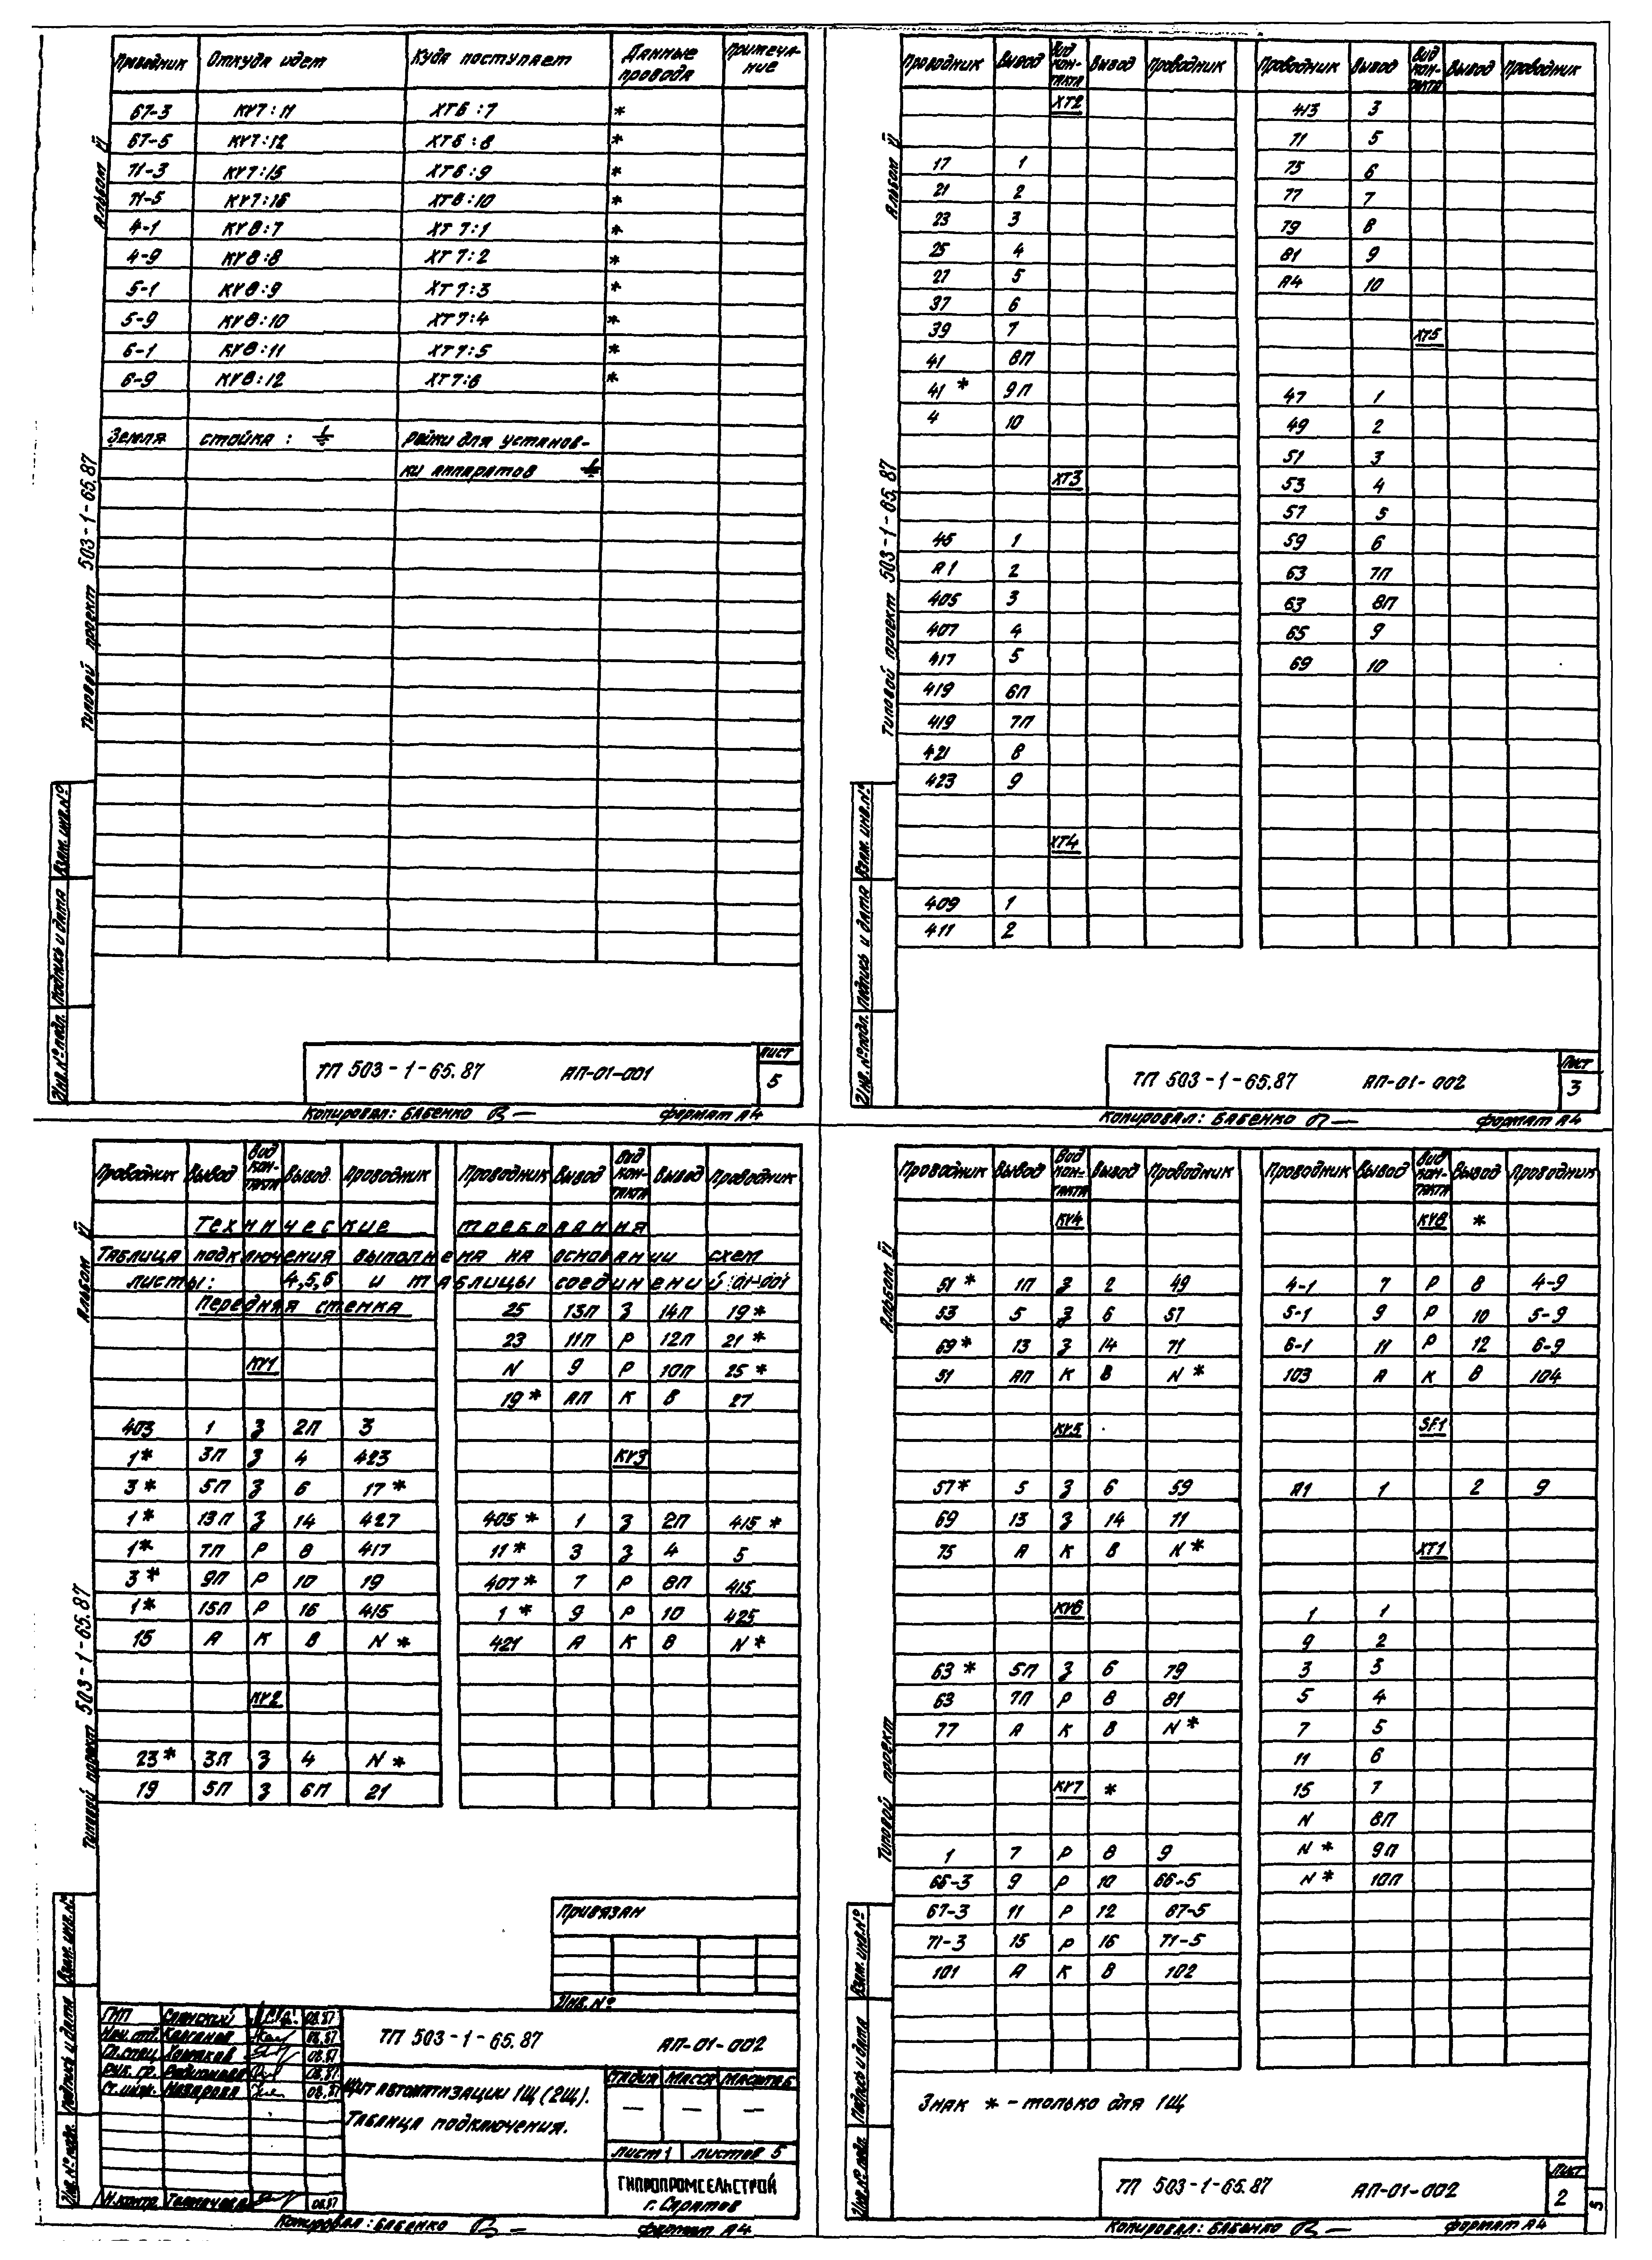 Проводник Откуда идет Куда поступает Данные провода Примечание
67-3 KV7:11 XT6:7 *
67-5 KV7:12 XT6:8 *
71-3 KV7:15 XT6:9 *
71-5 KV7:16 XT6:10 *
4-1 KV8:7 XT7:1 *
4-9 KV8:8 XT7:2 *
5-1 KV8:9 XT7:3 *
5-9 KV8:10 XT7:4 *
6-1 KV8:11 XT7:5 *
6-9 KV8:12 XT7:6 *
Земля стойка: рейки для установ-
ки аппаратов
Альбом
Типовой проект 503-1-65.87
Взам. инв.№
Подпись и дата
Инв.№подл.
ТП 503-1-65.87 АП-01-001
Лист
5
Копировал: Бабенко формат А4
Проводник Вывод Вид кон-такта Вывод Проводник Проводник Вывод Вид кон-такта Вывод Проводник
XT2
17 1
21 2
23 3
25 4
27 5
37 6
39 7
41 8П
41 * 9П
4 10
XT3
45 1
А1 2
405 3
407 4
417 5
419 6П
419 7П
421 8
423 9
XT4
409 1
411 2
413 3
71 5
75 6
77 7
79 8
81 9
А4 10
XT5
47 1
49 2
51 3
53 4
57 5
59 6
63 7П
63 8П
65 9
69 10
Альбом
Типовой проект 503-1-65.87
Взам. инв.№
Подпись и дата
Инв.№подл.
ТП 503-1-65.87 АП-01-002
Лист
3
Копировал: Бабенко формат А4
Проводник Вывод Вид кон-такта Вывод Проводник Проводник Вывод Вид кон-такта Вывод Проводник
Технические требования
Таблица подключения выполнена на основании схем
листы: 4,5,6 и таблицы соединений 01-001
Передняя стенка
KV1
403 1 З 2П 3
1* 3П З 4 423
3* 5П З 6 17*
1* 13П З 14 427
1* 7П Р 8 417
3* 9П Р 10 19
1* 15П Р 16 415
15 А К В N*
KV2
23* 3П З 4 N*
19 5П З 6П 21
25 13П З 14П 19*
23 11П Р 12П 21*
N 9 Р 10П 25*
19* АП К В 27
KV3
405* 1 З 2П 415*
11* 3 З 4 5
407* 7 Р 8П 415
1* 9 Р 10 425
421 А К В N*
Альбом
Типовой проект 503-1-65.87
Взам. инв.№
Подпись и дата
Инв.№подл.
Привязан
Инв.№
ГИП 08.87
Нач. отд. 08.87
Гл. спец. Хомяков 08.87
Рук. гр. Родионова 08.87
Ст. инж. Назарова 08.87
Н.контр. 08.87
ТП 503-1-65.87 АП-01-002
Щит автоматизации 1Щ(2Щ).
Таблица подключения.
Стадия Масса Масштаб
— — —
Лист 1 Листов 5
ГИПРОПРОМСЕЛЬСТРОЙ
г. Саратов
Копировал: Бабенко формат А4
Проводник Вывод Вид кон-такта Вывод Проводник Проводник Вывод Вид кон-такта Вывод Проводник
KV4
51* 1П З 2 49
53 5 З 6 57
69* 13 З 14 71
51 АП К В N*
KV5
57* 5 З 6 59
69 13 З 14 11
75 А К В N*
KV6
63* 5П З 6 79
63 7П Р 8 81
77 А К В N*
KV7 *
1 7 Р 8 9
66-3 9 Р 10 66-5
67-3 11 Р 12 67-5
71-3 15 Р 16 71-5
101 А К В 102
KV8 *
4-1 7 Р 8 4-9
5-1 9 Р 10 5-9
6-1 11 Р 12 6-9
103 А К В 104
SF1
А1 1 2 9
XT1
1 1
9 2
3 3
5 4
7 5
11 6
15 7
N 8П
N* 9П
N* 10П
Альбом
Типовой проект
Взам. инв.№
Подпись и дата
Инв.№ подл.
Знак * - только для 1Щ
ТП 503-1-65.87 АП-01-002
Лист
2
5
Копировал: Бабенко формат А4